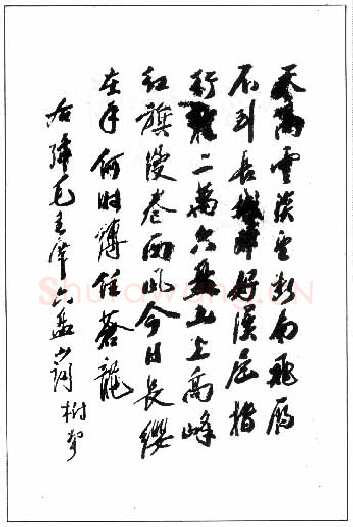 天高雲淡望斷南飛雁
不到長城非好漢屈指
行程二萬六盤山上高峰
紅旗漫卷西風今日長纓
在手何時縛住蒼龍
右錄毛主席六盤山詞 樹